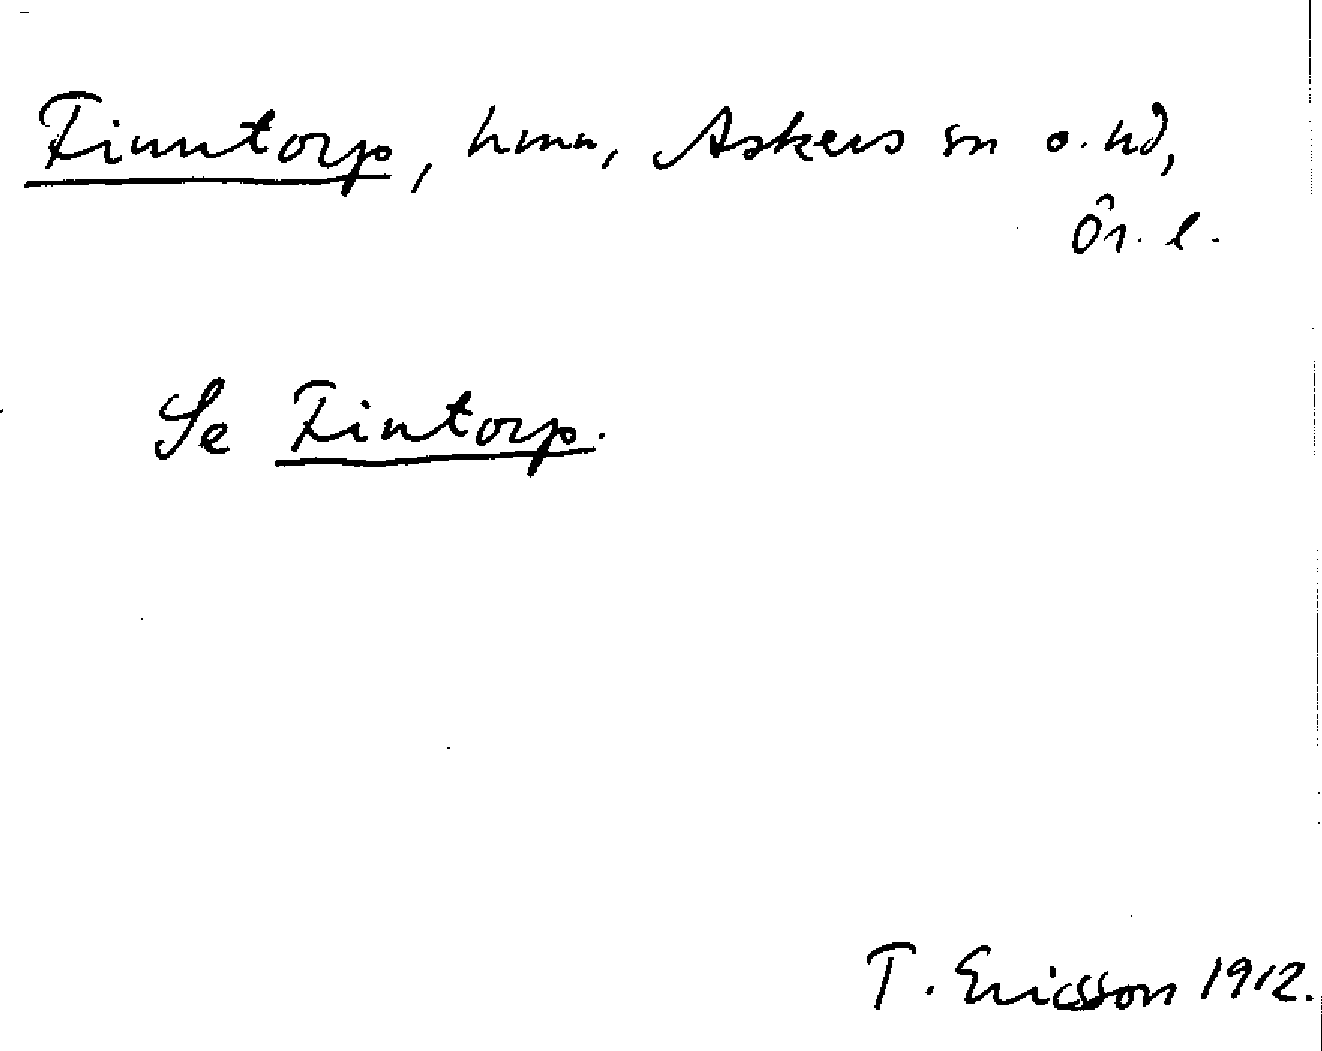 Finntorp, hmn, Askers sn o. hd,
Ör. l.
Se Fintorp.
T. Ericsson 1912.